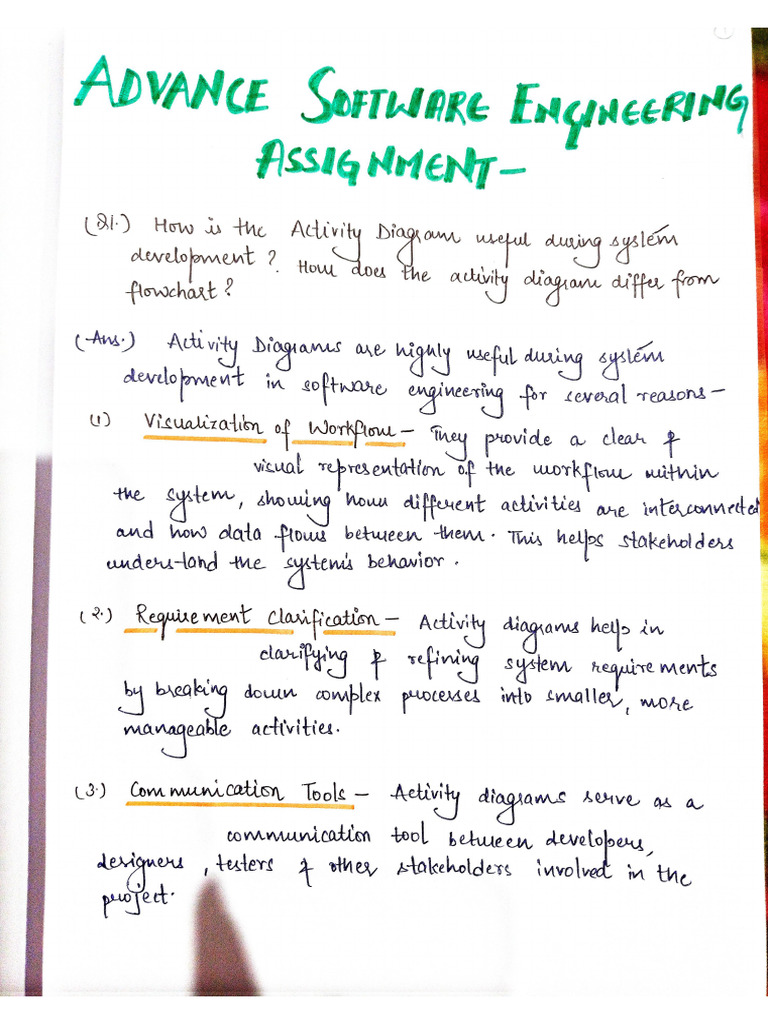 ADVANCE SOFTWARE ENGINEERING
ASSIGNMENT-
(Q1.) How is the Activity Diagram useful during system
development? How does the activity diagram differ from
flowchart?
(Ans.) Activity Diagrams are highly useful during system
development in software engineering for several reasons-
(1) Visualization of Workflow- They provide a clear &
visual representation of the workflow within
the system, showing how different activities are interconnected
and how data flows between them. This helps stakeholders
understand the system's behavior.
(2.) Requirement Clarification- Activity diagrams help in
clarifying & refining system requirements
by breaking down complex processes into smaller, more
manageable activities.
(3.) Communication Tools- Activity diagrams serve as a
communication tool between developers,
designers, testers & other stakeholders involved in the
project.